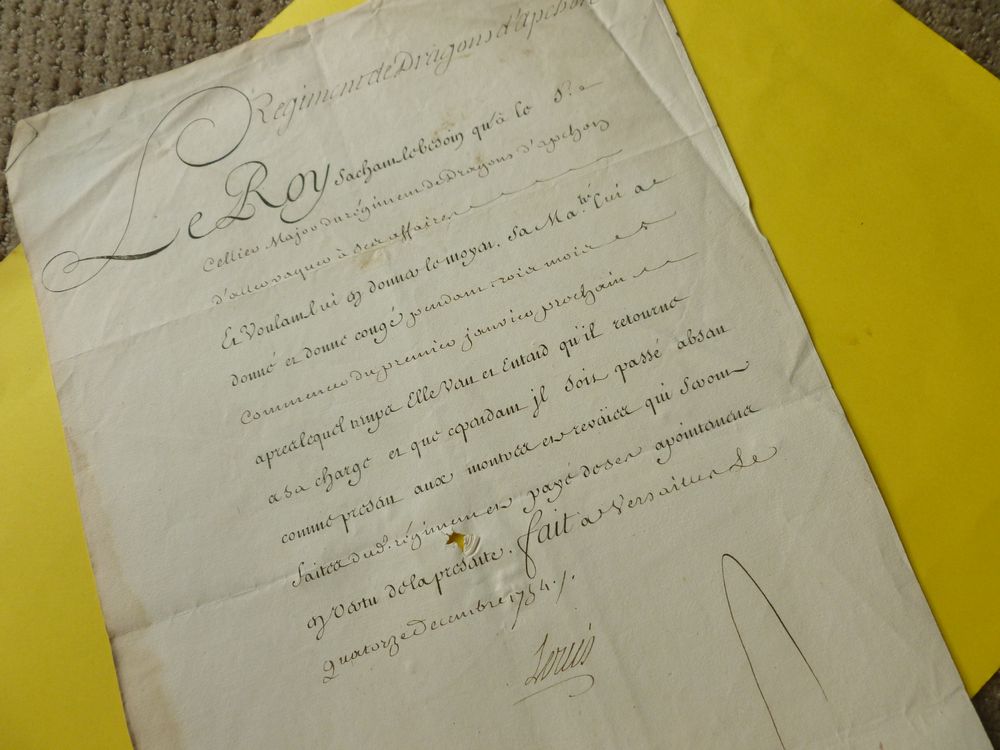 Regiment de Dragons d'apchon
Le Roy Sachant le besoin qu'à le S.r
Cellier Major du régiment de Dragons d'apchon
d'aller vaquer à Ses affaires
Et Voulant lui en donner le moyen, Sa Ma.té lui a
donné et donne congé pendant trois mois et
Commencer du premier janvier prochain
apres lequel temps Elle Veut et Entend qu'il retourne
a Sa charge et que cependant jl Soit passé absent
comme present aux montres et revües qui Seront
faites dud. régiment et payé de Ses apointemens
en vertu de la presente. fait a Versailles Le
Quatorze Decembre 1754./.
Louis